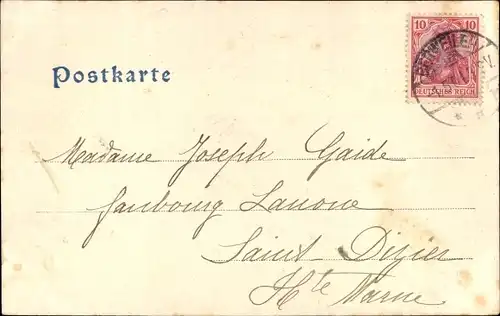 10 10
DEUTSCHES REICH
Postkarte
Madame Joseph Gaide
faubourg Lanoue
Saint Dizier
Hte Marne